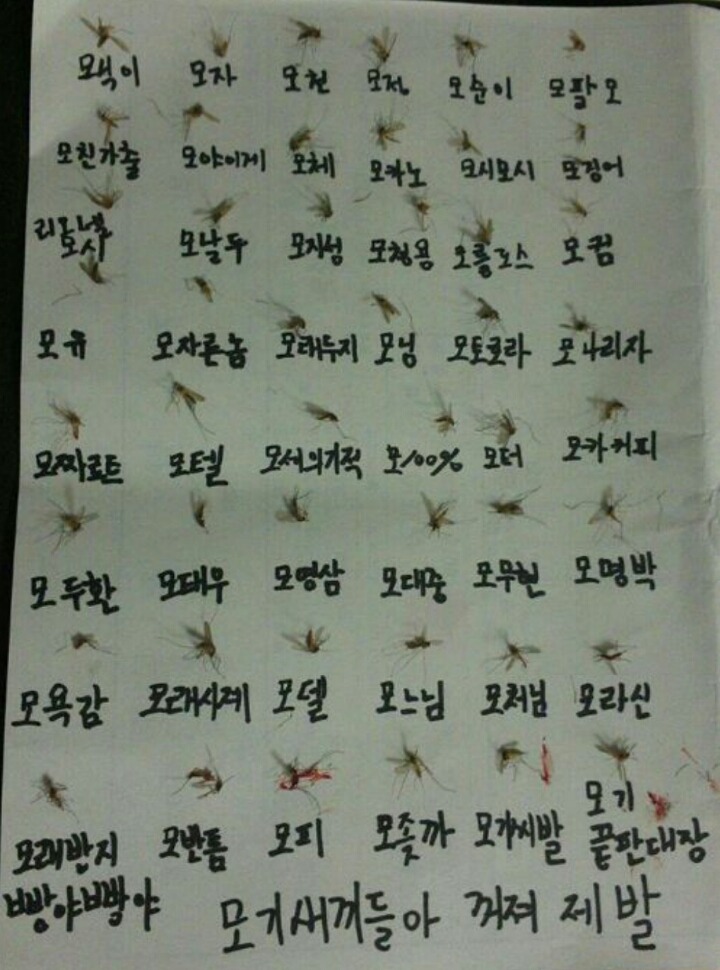 모석이 모자 모천 모정 모순이 모팔모
모친가출 모야이게 모체 모카노 모시모시 모징어
리오넬
모시 모날두 모지성 모청용 모릉도스 모컴
모유 모자른놈 모래두지 모닝 모토로라 모나리자
모짜르트 모텔 모세의기적 모100% 모터 모카커피
모두환 모태우 모영삼 모대중 모무현 모명박
모욕감 모래시계 모델 모느님 모처님 모라신
모래반지
빵야빵야 모반틈 모피 모좆까 모개씨발 모기
끝판대장
모기새끼들아 꺼져 제발